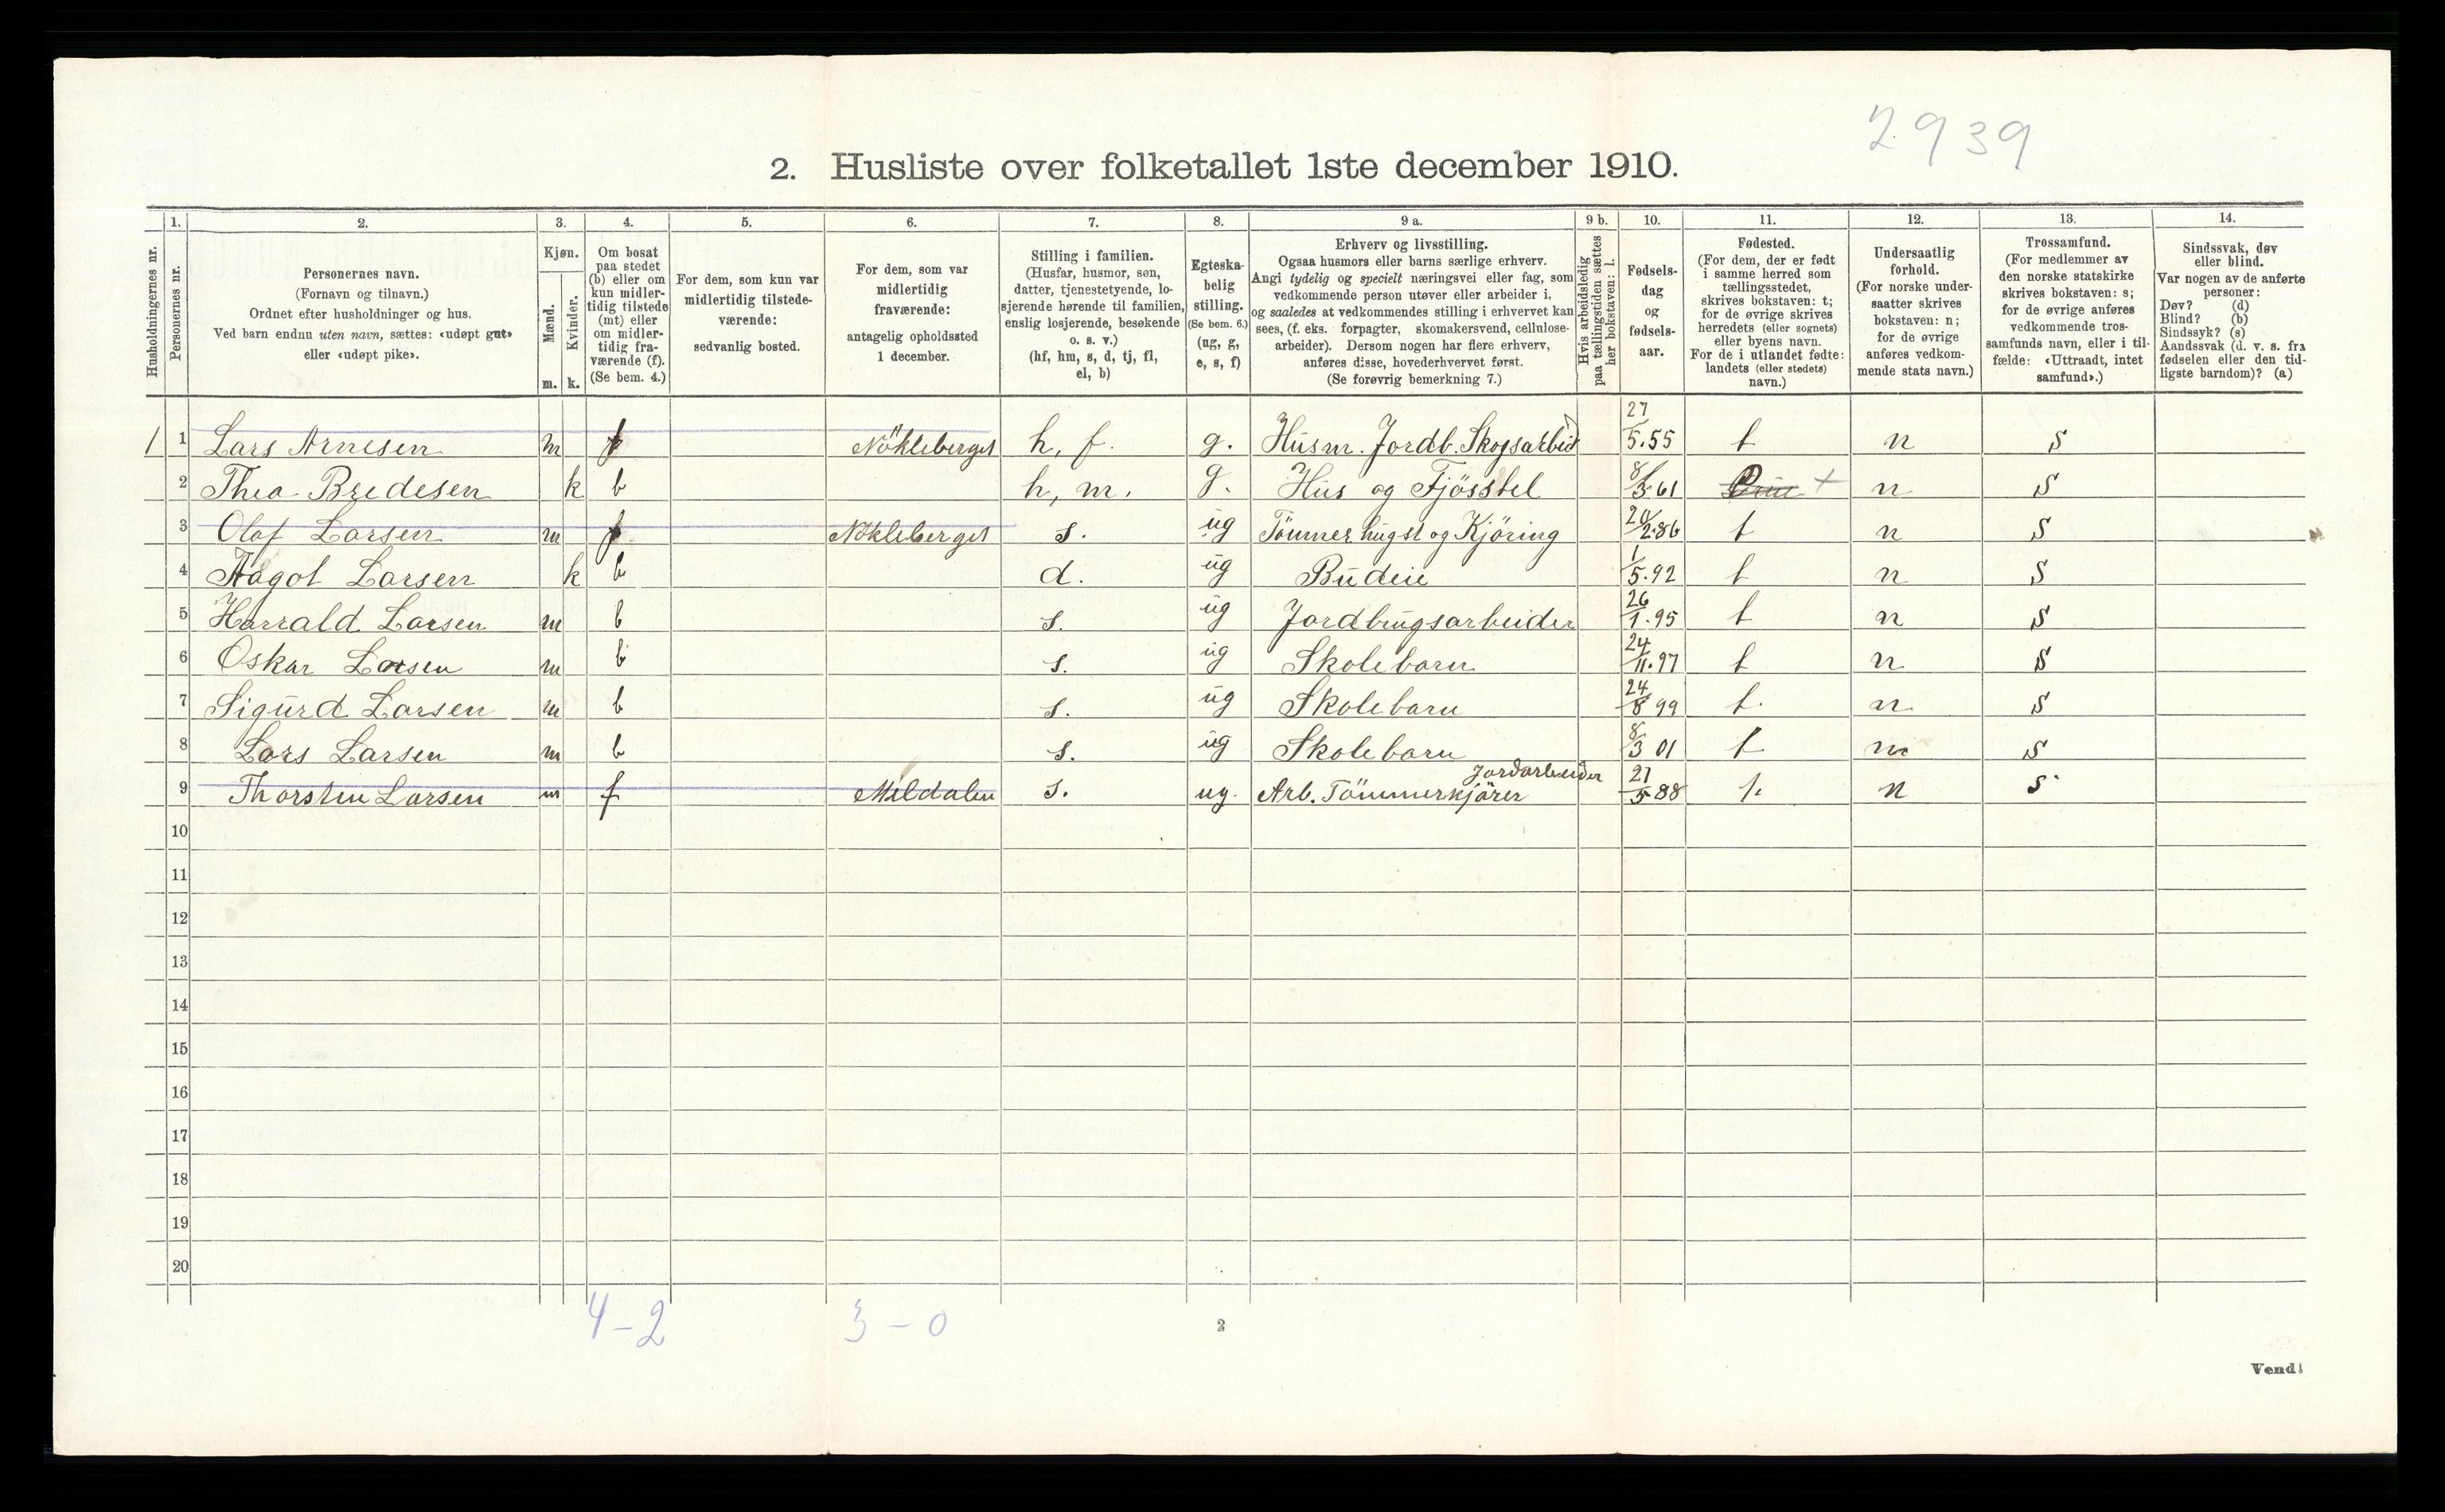 2939
2. Husliste over folketallet 1ste december 1910.
Husholdningernes nr.
1.
Personernes nr.
2.
Personernes navn.
(Fornavn og tilnavn.)
Ordnet efter husholdninger og hus.
Ved barn endnu uten navn, sættes: «udøpt gut»
eller «udøpt pike».
3.
Kjøn.
Mænd.
m.
Kvinder.
k.
4.
Om bosat
paa stedet
(b) eller om
kun midler-
tidig tilstede
(mt) eller
om midler-
tidig fra-
værende (f).
(Se bem. 4.)
5.
For dem, som kun var
midlertidig tilstede-
værende:
sedvanlig bosted.
6.
For dem, som var
midlertidig
fraværende:
antagelig opholdssted
1 december.
7.
Stilling i familien.
(Husfar, husmor, søn,
datter, tjenestetyende, lo-
sjerende hørende til familien,
enslig losjerende, besøkende
o. s. v.)
(hf, hm, s, d, tj, fl,
el, b)
8.
Egteska-
belig
stilling.
(Se bem. 6.)
(ug, g,
e, s, f)
9 a.
Erhverv og livsstilling.
Ogsaa husmors eller barns særlige erhverv.
Angi tydelig og specielt næringsvei eller fag, som
vedkommende person utøver eller arbeider i,
og saaledes at vedkommendes stilling i erhvervet kan
sees, (f. eks. forpagter, skomakersvend, cellulose-
arbeider). Dersom nogen har flere erhverv,
anføres disse, hovederhvervet først.
(Se forøvrig bemerkning 7.)
9 b.
Hvis arbeidsledig
paa tællingstiden sættes
her bokstaven: l.
10.
Fødsels-
dag
og
fødsels-
aar.
11.
Fødested.
(For dem, der er født
i samme herred som
tællingsstedet,
skrives bokstaven: t;
for de øvrige skrives
herredets (eller sognets)
eller byens navn.
For de i utlandet fødte:
landets (eller stedets)
navn.)
12.
Undersaatlig
forhold.
(For norske under-
saatter skrives
bokstaven: n;
for de øvrige
anføres vedkom-
mende stats navn.)
13.
Trossamfund.
(For medlemmer av
den norske statskirke
skrives bokstaven: s;
for de øvrige anføres
vedkommende tros-
samfunds navn, eller i til-
fælde: «Uttraadt, intet
samfund».)
14.
Sindssvak, døv
eller blind.
Var nogen av de anførte
personer:
Døv? (d)
Blind? (b)
Sindssyk? (s)
Aandssvak (d. v. s. fra
fødselen eller den tid-
ligste barndom)? (a)
1 1 Lars Arnesen m f Nökleberget h, f. g. Husm. Jordb. Skogsarbeid 27/5.55 t n S
2 Thea Bredesen k b h, m. g. Hus og Fjösstel 8/3 61 t n S
3 Olaf Larsen m f Nökleberget s. ug Tömmerhugst og Kjöring 20/2.86 t n S
4 Aagot Larsen k b d. ug Budeie 1/5.92 t n S
5 Harrald Larsen m b s. ug Jordbrugsarbeider 26/1.95 t n S
6 Oskar Larsen m b s. ug Skolebarn 24/11.97 t n S
7 Sigurd Larsen m b s. ug Skolebarn 24/8 99 t. n S
8 Lars Larsen m b s. ug Skolebarn 8/3 01 t n S
Jordarbeider
9 Thorsten Larsen m f Meldalen s. ug. Arb. Tömmerkjörer 21/5 88 t. n S
10
11
12
13
14
15
16
17
18
19
20
4-2 3-0
2
Vend!